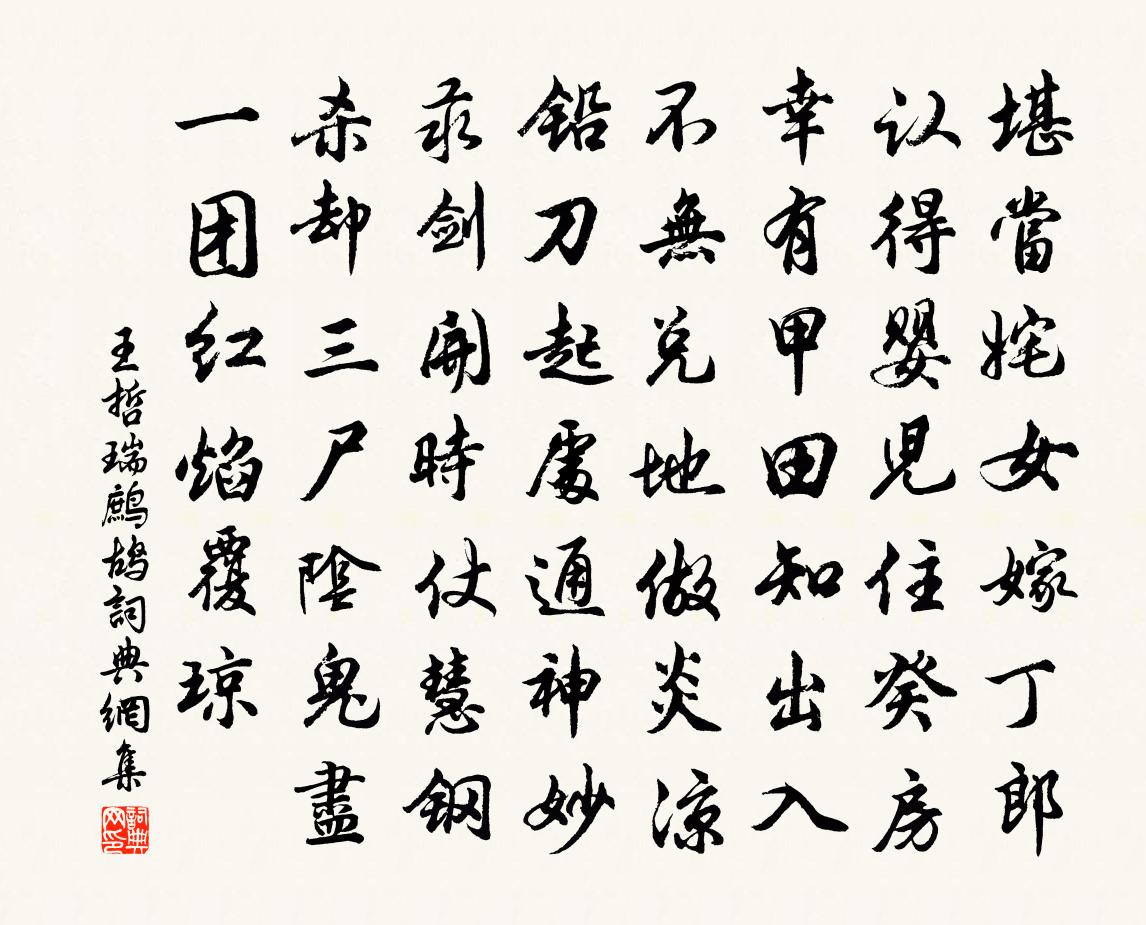 堪當姹女嫁丁郎
认得婴児住癸房
幸有甲田知出入
不無兑地做炎涼
铅刀起處通神妙
汞剑開時仗慧钢
杀却三尸陰鬼盡
一团红焰覆琼
王哲瑞鹧鸪詞典網集
詞典网印